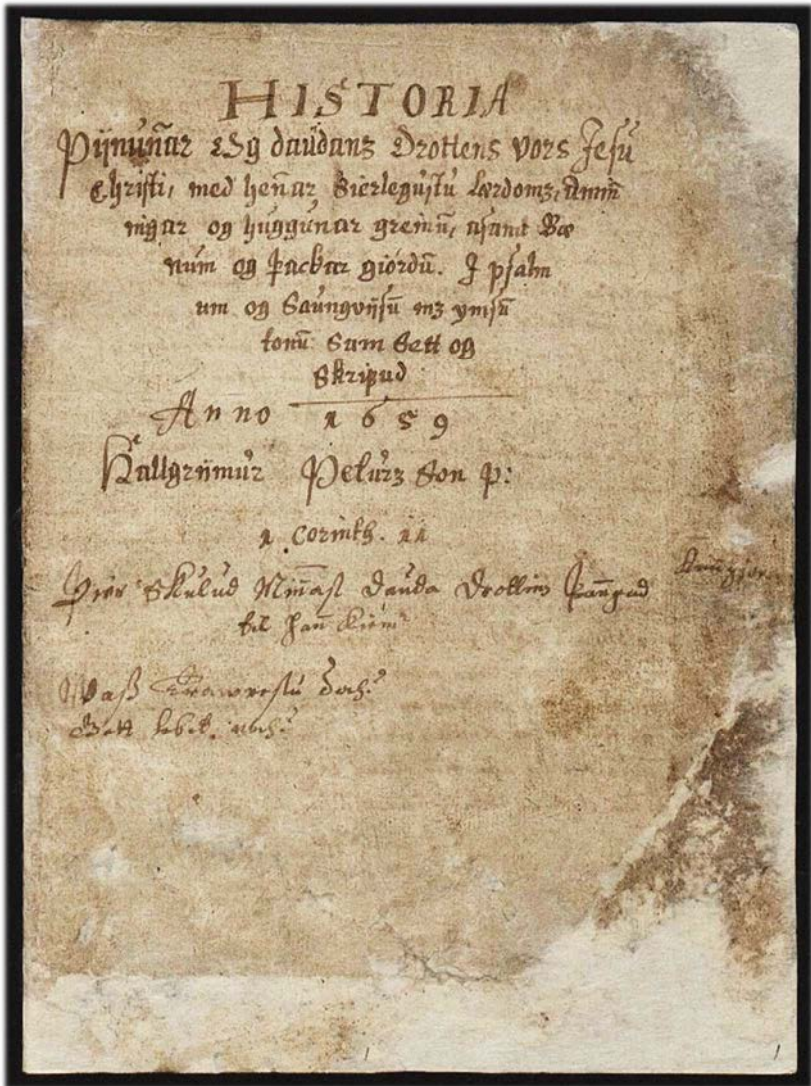 HISTORIA
Pijnun̄ar Og daudans Drottens vors Jesu
Christi, med hen̄ar Sierlegustu Lærdoms, Amin̄
ingar og huggunar greinū, asamt Bæ
num og þackar giördū. J psalm
um og Saungvijsū mz ymsū
tonū Sam Sett og
Skrifud
Anno 1659
Hallgrijmur Peturz Son p:
1 Corinth. 11
Þier Skulud Min̄ast dauda Drottins þan̄gad
til han̄ kiemr
Waß Trawrestu doch?
Gott lebet noch?
1 1